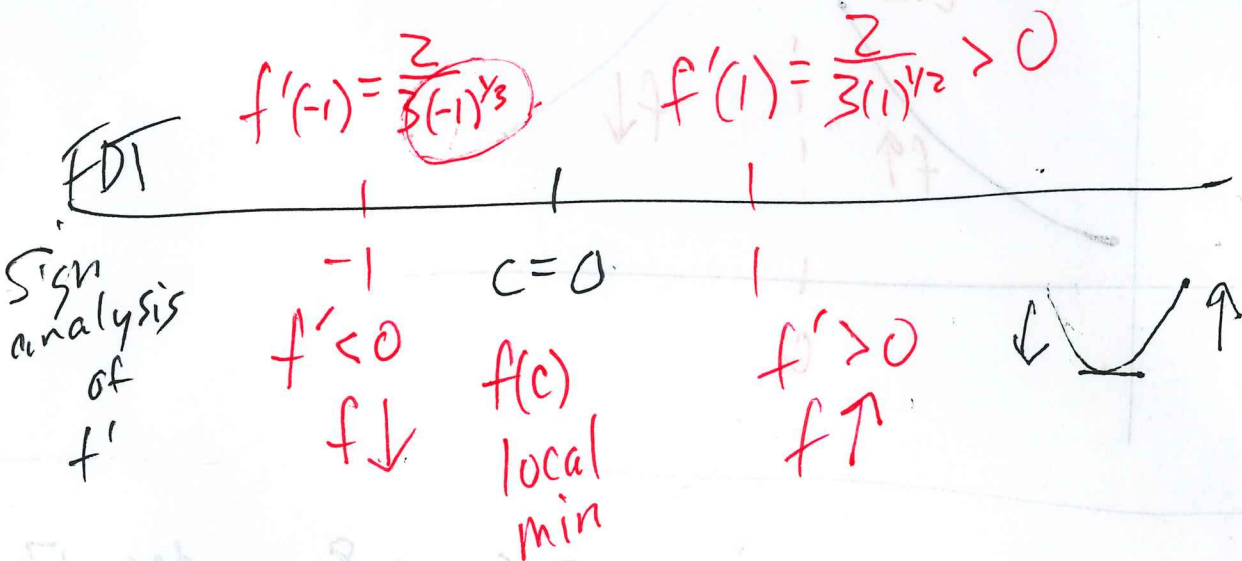 f'(-1) = 2/3(-1)^1/3
f'(1) = 2/3(1)^1/2 > 0
FDT
-1 c=0 1
Sign
analysis
of
f'
f' < 0
f ↓
f(c)
local
min
f' > 0
f ↑
↓ ↑